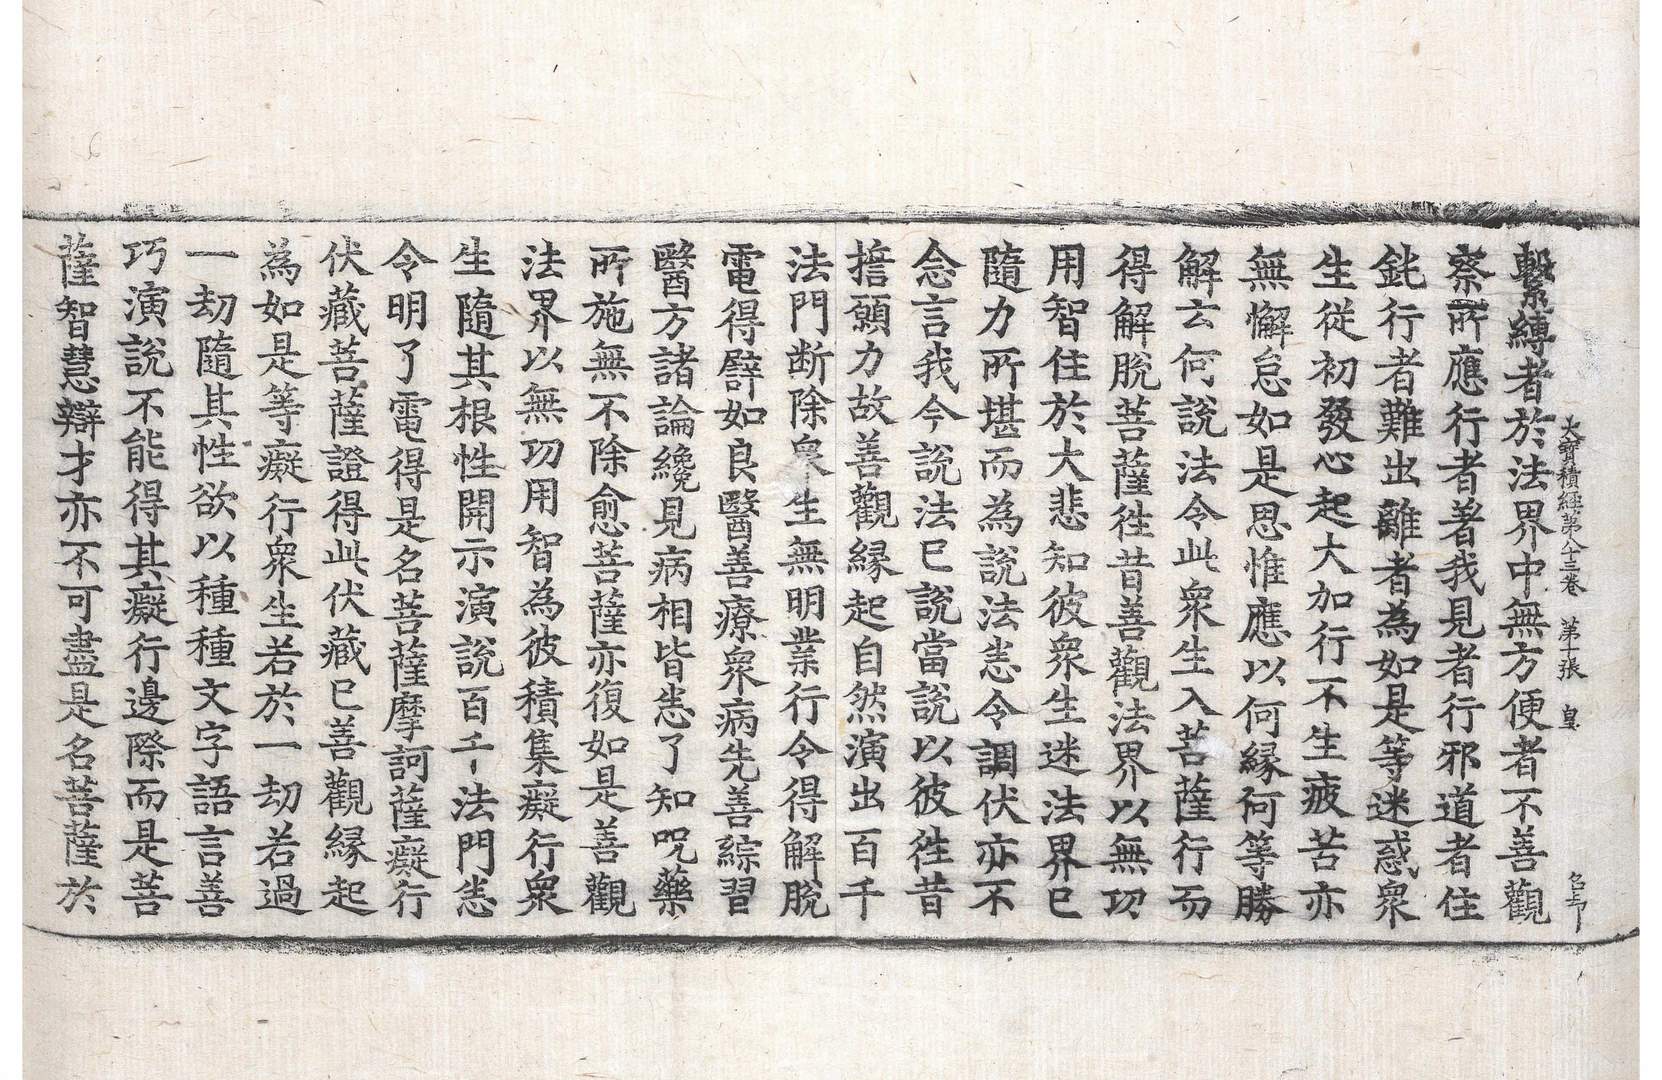 大寶積經第八十三卷 第十張 皇
繫縛者於法界中無方便者不善觀
察所應行者著我見者行邪道者住
鈍行者難出離者為如是等迷惑衆
生從初發心起大加行不生疲苦亦
無懈怠如是思惟應以何縁何等勝
解云何說法令此衆生入菩薩行而
得解脫菩薩徃昔善觀法界以無功
用智住於大悲知彼衆生迷法界已
隨力所堪而為說法悉令調伏亦不
念言我今說法已說當說以彼徃昔
擔願力故善觀縁起自然演出百千
法門断除衆生無明業行令得解脫
電得譬如良醫善療衆病先善綜習
醫方諸論纔見病相皆悉了知呪藥
所施無不除愈菩薩亦復如是善觀
法界以無功用智為彼積集癡行衆
生隨其根性開示演說百千法門悉
令明了電得是名菩薩摩訶薩癡行
伏藏菩薩證得此伏藏已善觀縁起
為如是等癡行衆生若於一劫若過
一劫隨其性欲以種種文字語言善
巧演說不能得其癡行邊際而是菩
薩智慧辯才亦不可盡是名菩薩於